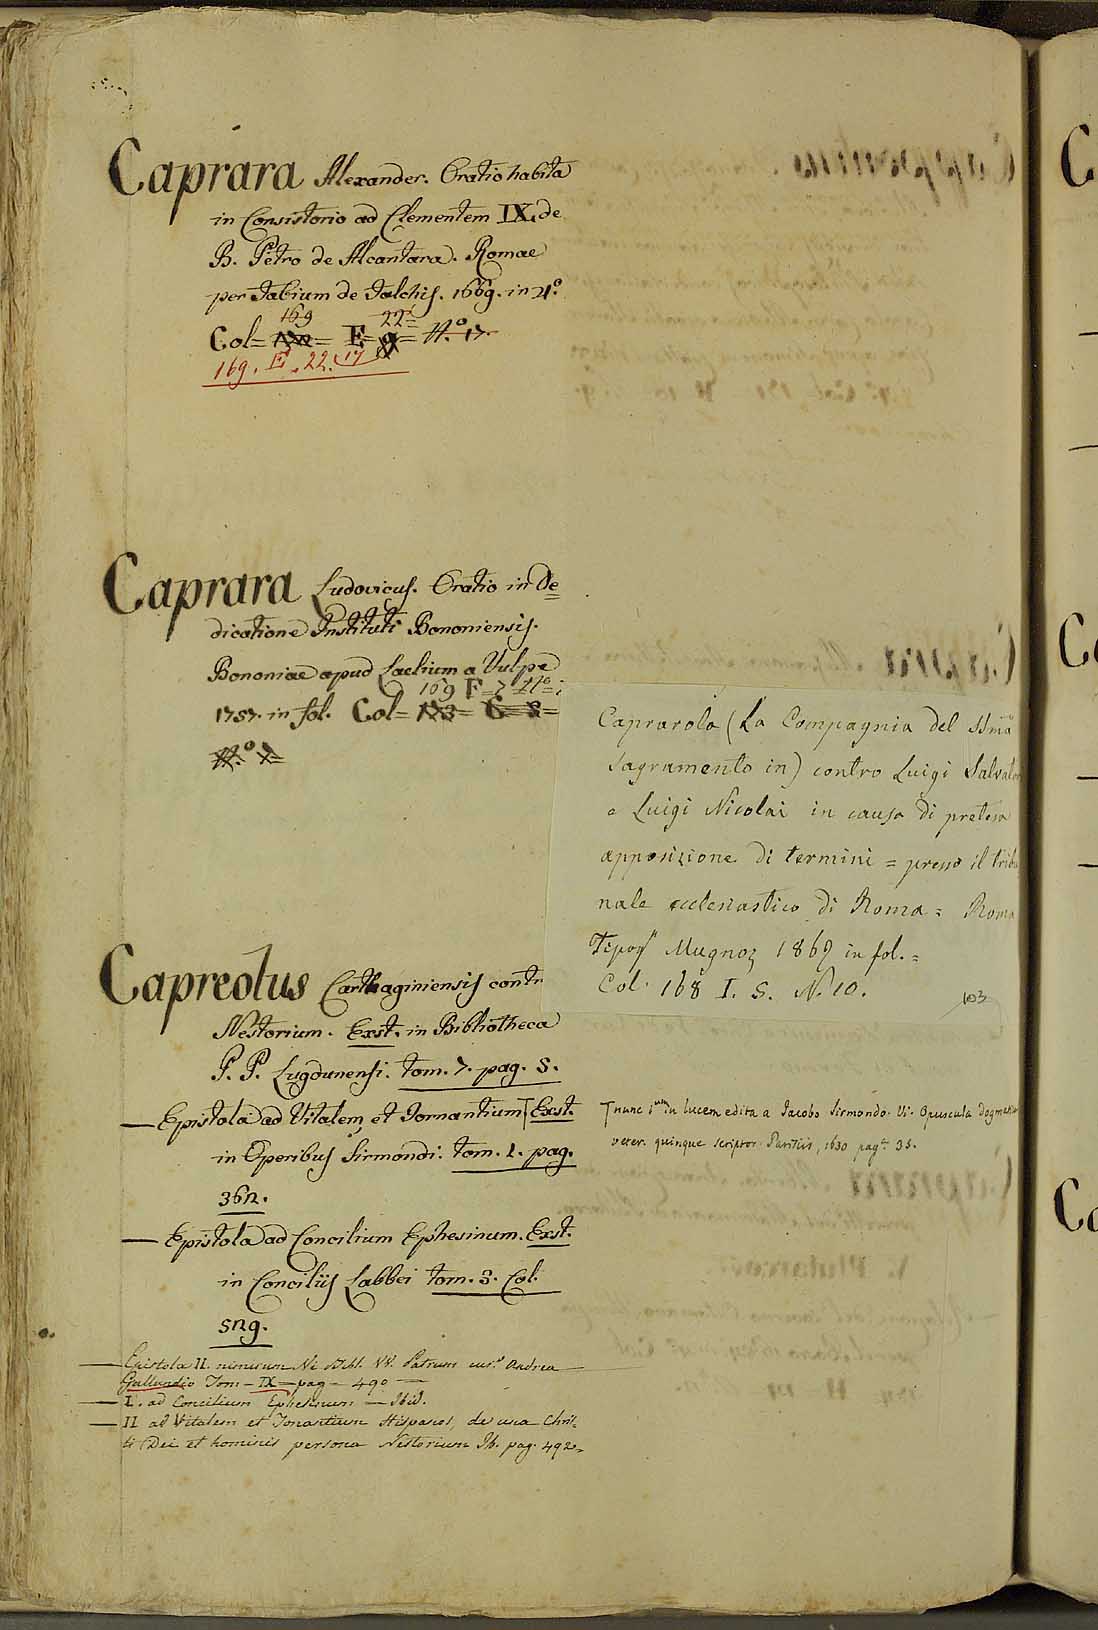 Caprara Alexander. Oratio habita
in Consistorio ad Clementem IX. de
B. Petro de Alcantara. Romae
per Fabium de Falchis. 1669. in 4.º
169 22
Col= = E= = N.º 17.
169. E. 22. 17
Caprara Ludovicus. Oratio in De=
dicatione Instituti Bononiensis.
Bononiae apud Laelium a Vulpe
169 F=7
1757. in fol. Col= 173= C= S=
Capreolus Carthaginiensis contr
Nestorium. Exst. in Bibliotheca
P. P. Lugdunensi. tom. 7. pag. S.
— Epistola ad Vitalem, et Tornantium Exst.
in Operibus Sirmondi. tom. 1. pag.
362.
— Epistola ad Concilium Ephesinum. Exst.
in Conciliis Labbei tom. 3. Col.
529.
— Epistola II. nimirum Bibl. VV. Patrum Andrea
Gallandio Tom – IX – pag – 490 —
— I. ad Concilium Ephesinum — Ibid.
— II ad Vitalem et Tonantium Hispanos, de una Chris-
ti Dei et hominis persona Nestorium Ib. pag. 492.
Caprarola (La Compagnia del SSmo
Sagramento in) contro Luigi Salvator
e Luigi Nicolai in causa di pretesa
apposizione di termini = presso il tribu
nale ecclesiastico di Roma = Roma
Tipogr Mugnoz 1869 in fol. =
Col. 168 I. S. N. 10.
103
nunc 1um in lucem edita a Jacobo Sirmondo. Vi. Opuscula Dogmatica
veter. quinque scriptor. Parisiis, 1630 pag. 35.